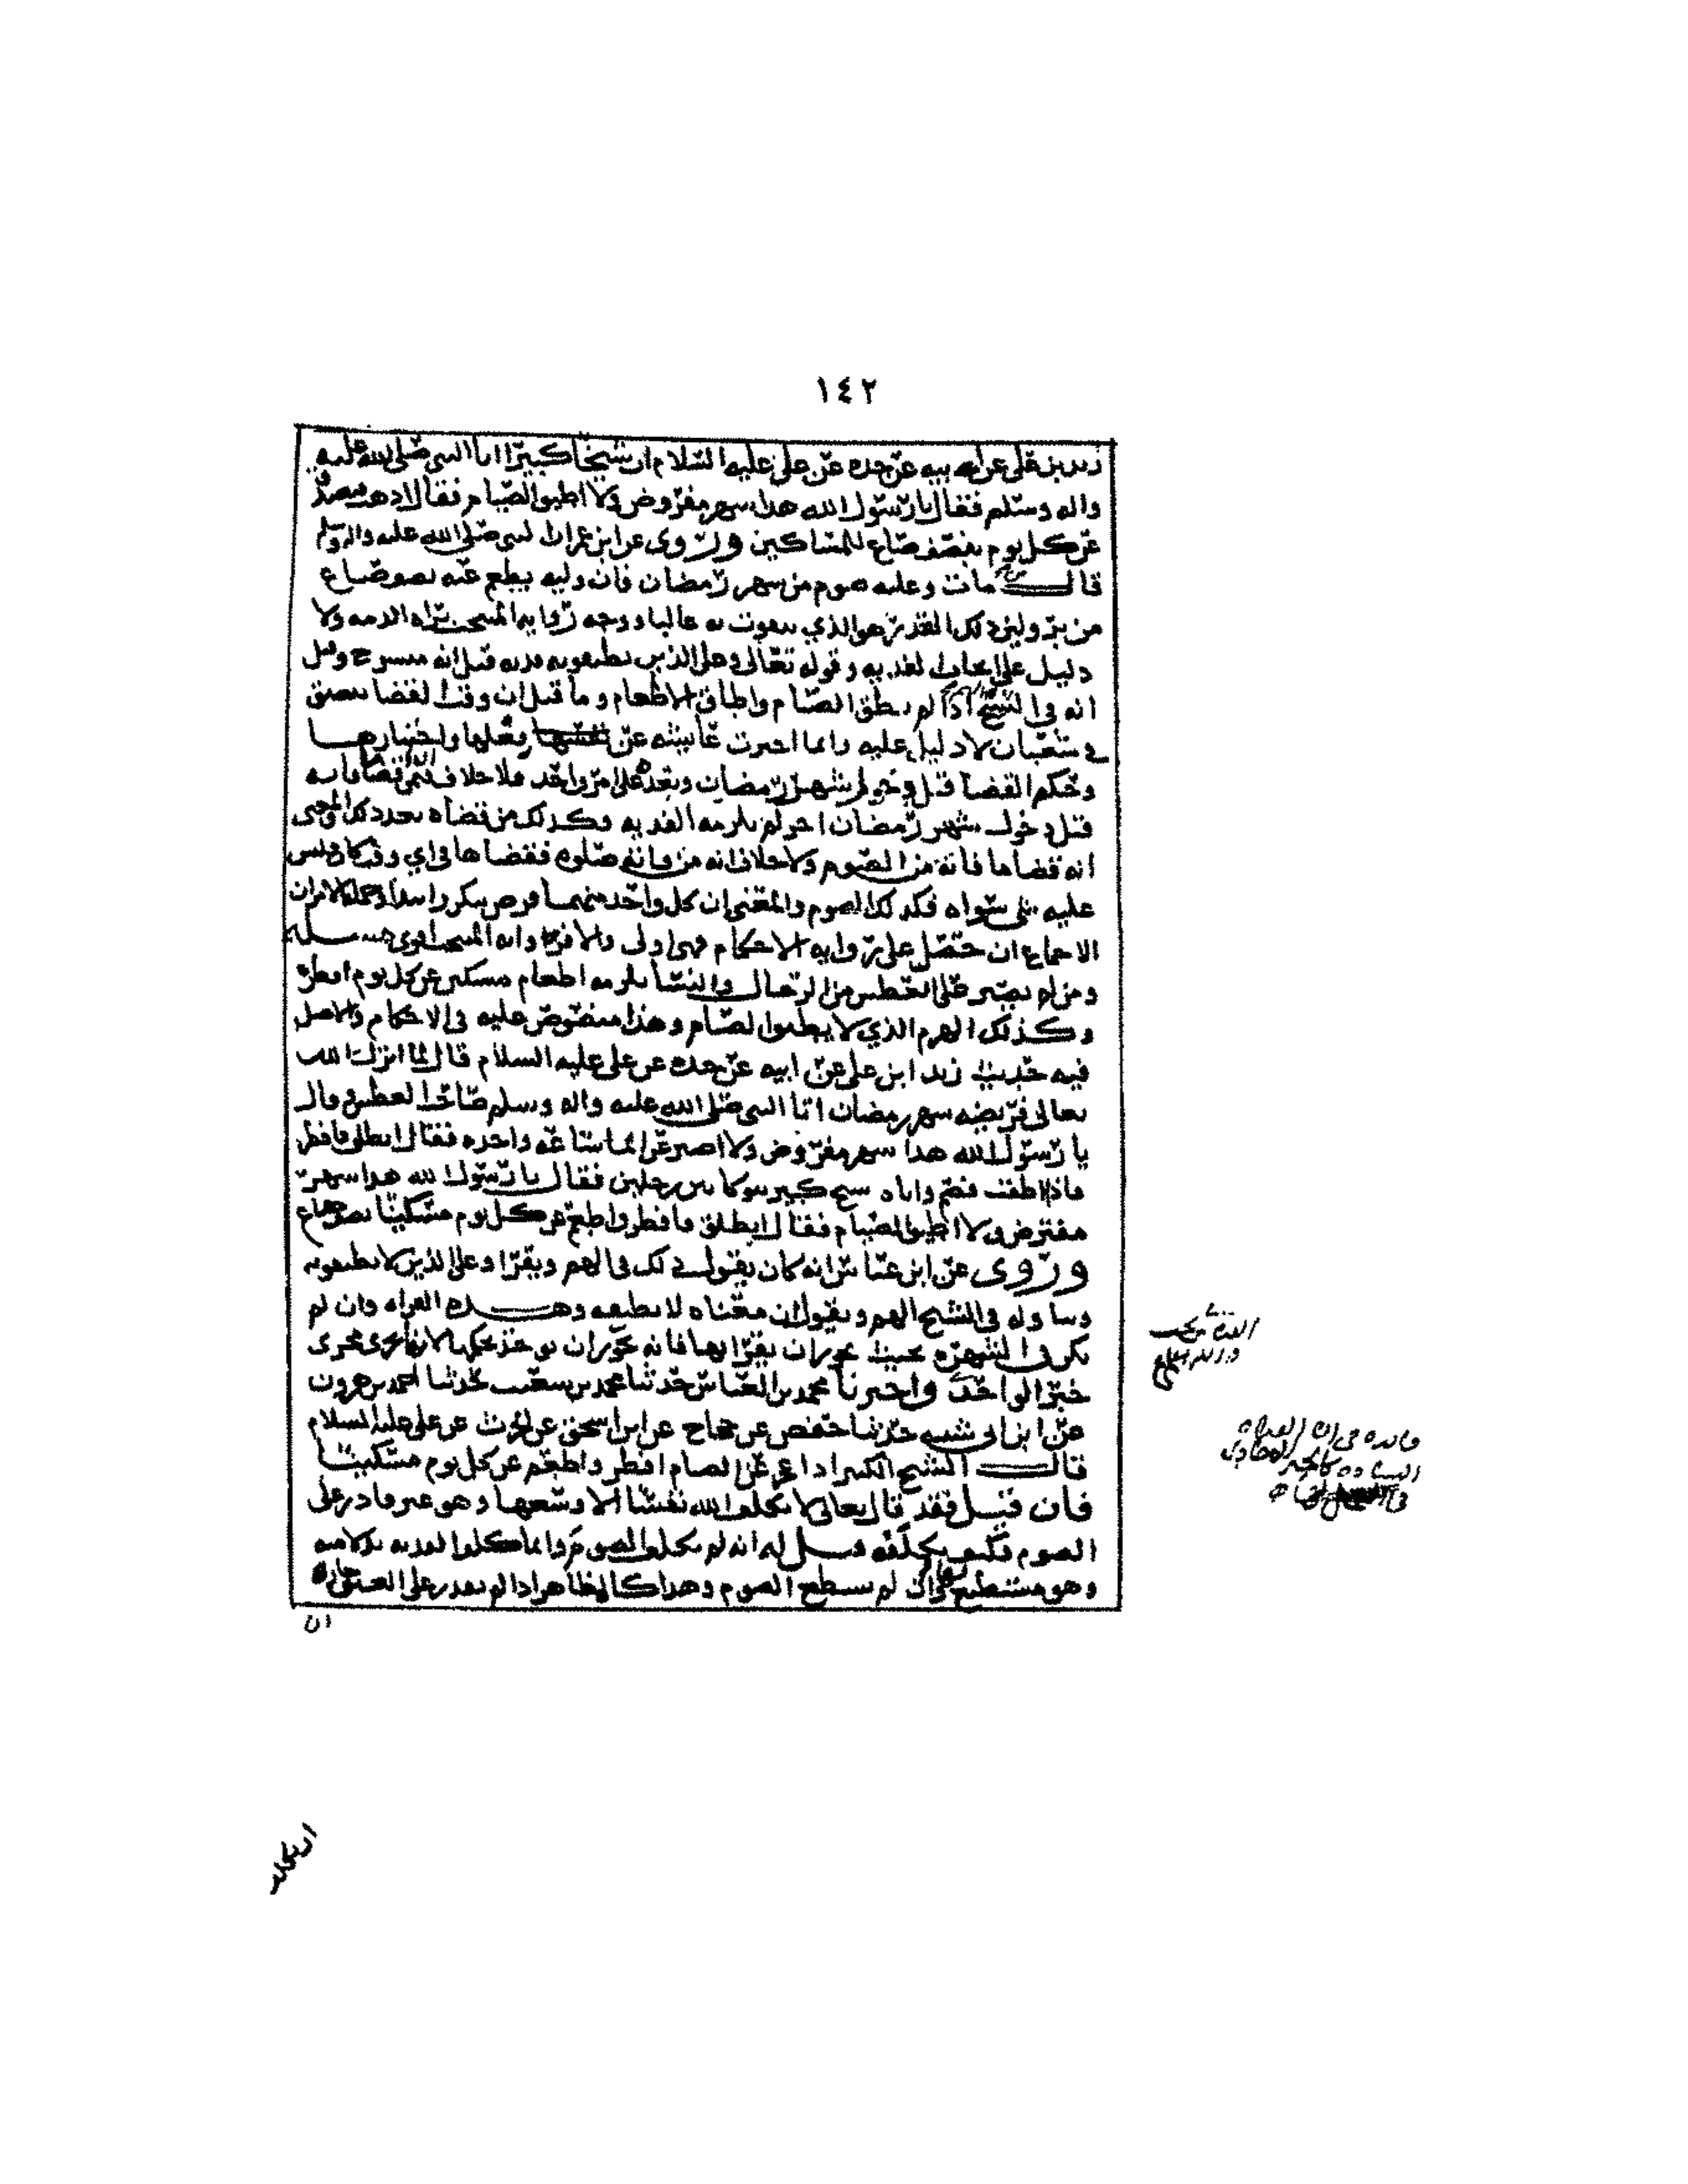 ١٤٢
زيد بن علي عن ابيه عن جده عن علي عليه السلام ان شيخا كبيرا اتا النبي صلى الله عليه
واله وسلم فقال يا رسول الله هذا شهر مفروض ولا اطيق الصيام فقال اذهب فتصدق
عن كل يوم بنصف صاع للمساكين وروى عن ابن عمر ان النبي صلى الله عليه واله وسلم
قال من مات وعليه صوم من شهر رمضان فان وليه يطعم عنه نصف صاع
من بر ولين ذلك القدر هو الذي يتقوت به غالبا ووجه رواية المنتخب براه الذمه ولا
دليل على ايجاب الفديه وقوله تعالى وعلى الذين يطيقونه فديه قيل انه منسوخ وقيل
انه في الشيخ اذا لم يطق الصيام واطاق الاطعام وما قيل ان وقت القضا تضيق
في شعبان لا دليل عليه وانما اخبرت عائشه عن فعلها واختيارها
وحكم القضا قبل دخول شهر رمضان وبعده على امر واحد فلا خلاف ان من قضا ما فاته
قبل دخول شهر رمضان اخر لم يلزمه الفديه وكذلك من قضاه بعد ذلك والمعنى
انه قضا ما فاته من الصوم ولا خلاف انه من فاته صلوه فقضاها في اي وقت كان فليس
عليه شي سواه فكذلك الصوم والمعنى ان كل واحد منهما فرض يتكرر
الاجماع ان حصل على رواية الاحكام فهي اولى والا فرواية المنتخب اقوى مسلة
ومن لم يصبر على العطش من الرجال والنسا يلزمه اطعام مسكين عن كل يوم افطره
وكذلك الهرم الذي لا يطيق الصيام وهذا منصوص عليه في الاحكام والاصل
فيه حديث زيد ابن علي عن ابيه عن جده عن علي عليه السلام قال لما انزل الله
تعالى فريضه شهر رمضان اتا النبي صلى الله عليه واله وسلم صاحب العطش فقال
يا رسول الله هذا شهر مفروض ولا اصبر عن الما ساعه واحده فقال انطلق فافطر
فاذا اطقت فصم واتاه شيخ كبير يتوكا بين رجلين فقال يا رسول الله هذا شهر
مفترض ولا اطيق الصيام فقال انطلق فافطر واطعم عن كل يوم مسكينا نصف صاع
وروى عن ابن عباس انه كان يقول ذلك في الهم ويقرا وعلى الذين لا يطيقونه
وتاوله في الشيخ الهم ويقول ان معناه لا يطيقه وهذه القراه وان لم
تكن في الشهره بحيث يجوز ان يقرا بها فانه يجوز ان يوخذ بحكمها لانها تجرى مجرى
خبر الواحد واخبرنا محمد بن العباس حدثنا محمد بن شعيب حدثنا احمد بن هرون
عن ابن ابي شيبه حدثنا حفص عن حجاج عن ابي اسحق عن الحرث عن علي عليه السلام
قال الشيخ الكبير اذا عجز عن الصيام افطر واطعم عن كل يوم مسكينا
فان قيل فقد قال تعالى لا يكلف الله نفسا الا وسعها وهو غير قادر على
الصوم فكيف يكلفه قيل له انه لم يكلف الصوم وانما كلف الفديه
وهو مستطيع لها وان لم يستطع الصوم وهذا كالمظاهر اذا لم يقدر على العتق جاز
ان
فائده في ان القراه
الشاذه كالخبر الاحادي